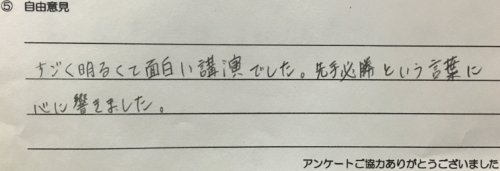 ⑤ 自由意見
すごく明るくて面白い講演でした。先手必勝という言葉に
心に響きました。
アンケートご協力ありがとうございました